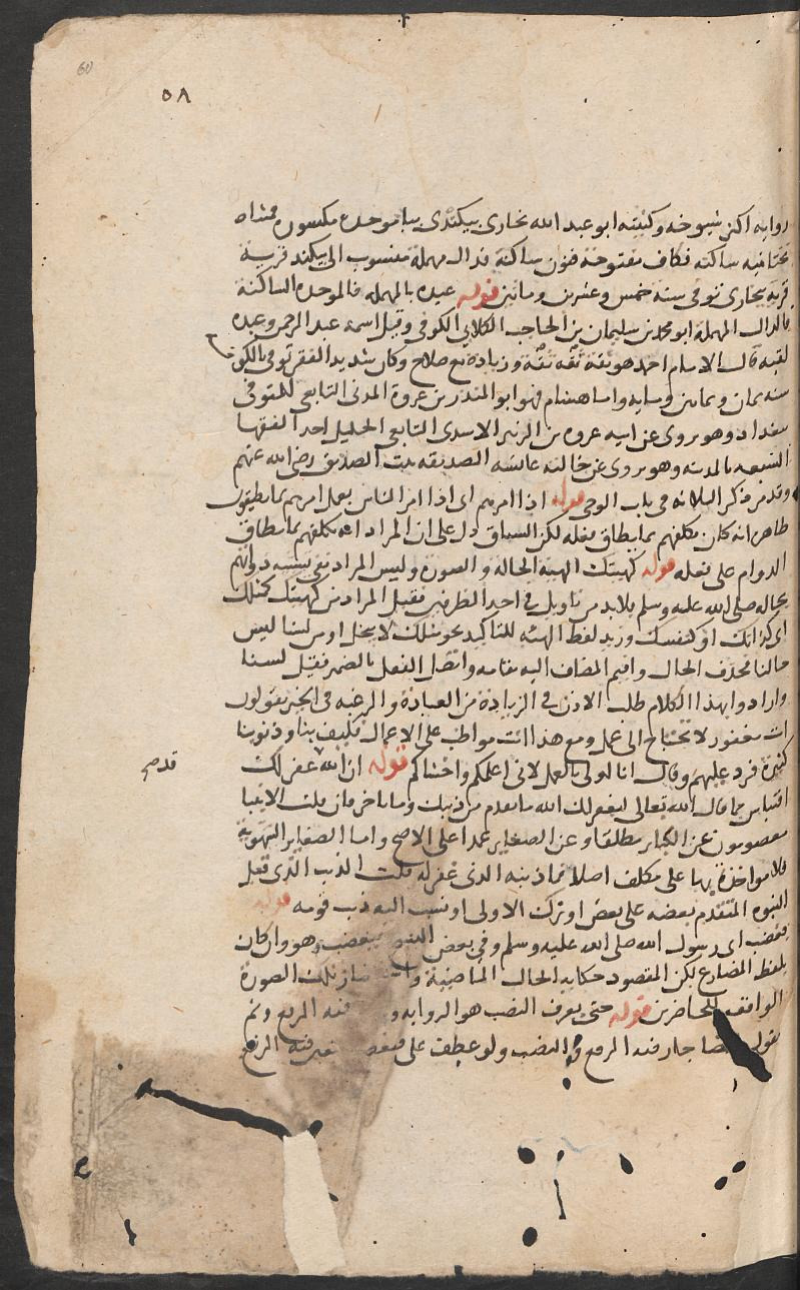 60
٥٨
رواية اكثر شيوخه وكنيته ابو عبد الله بخارى بيكندى ببا موحده مكسوره فمثناه
تحتانيه ساكنة فكاف مفتوحة فنون ساكنة فدال مهملة منسوب الى بيكند قرية
قرية بخارى توفى سنة خمس وعشرين ومائتين قوله عبده بالمهمله فالموحده الساكنة
فالدال المهملة ابو محمد بن سليمان بن الحاجب الكلابى الكوفى وقيل اسمه عبد الرحمن وعبده
لقبه قال الامام احمد هو ثقة ثقة ثقة وزيادة مع صلاح وكان شديد الفقر توفى بالكوفة
سنه ثمان وثمانين ومايه واما هشام فهو ابو المنذر بن عروة المدنى التابعى المتوفى
ببغداد وهو يروى عن ابيه عروه بن الزبير الاسدى التابعى الجليل احد الفقها
السبعه بالمدينه وهو يروى عن خالته عائشه الصديقه بنت الصديق رضى الله عنهم
وقد مر ذكر الثلاثه فى باب الوحى قوله اذا امرهم اى اذا امر الناس بعمل امرهم بما يطيقون
ظاهره انه كان يكلفهم بما يطاق فعله لكن السياق دل على ان المراد انه يكلفهم بما يطاق
الدوام على فعله قوله كهيئتك الهيئة الحالة و الصورة وليس المراد نفى تشبيه ذواتهم
بحاله صلى الله عليه وسلم فلا بد من تاويل فى احد الطرفين فقيل المراد من كهيئتك كمثلك
اى كذاتك او كنفسك وزيد لفظ الهيئه للتاكيد نحو مثلك لا يبخل او من لسنا ليس
حالنا فحذف الحال واقيم المضاف اليه مقامه واتصل الفعل بالضمير فقيل لسنا
وارادوا بهذا الكلام طلب الاذن فى الزيادة من العبادة والرغبه فى الخير يقولون
انت مغفور لا تحتاج الى عمل ومع هذا انت مواظب على الاعمال فكيف بنا وذنوبنا
كثيرة فرد عليهم وقال انا اولى بالعمل لانى اعلمكم واخشاكم قوله ان الله غفر لك
قد صح
اقتباس مما قال الله تعالى ليغفر لك الله ما تقدم من ذنبك وما تاخر فان قلت الانبيا
معصومون عن الكبائر مطلقا وعن الصغاير عمدا على الاصح واما الصغاير السهوية
فلا مواخذة بها على مكلف اصلا فما ذنبه الذى غفر له قلت الذنب الذى قبل
النبوه المتقدم بعضه على بعض او ترك الاولى او نسب اليه ذنب قومه قوله
فغضب اى رسول الله صلى الله عليه وسلم وفى بعض النسخ فيغضب وهو وان كان
بلفظ المضارع لكن المقصود حكاية الحال الماضية تلك الصورة
الواقعه للحاضرين قوله حتى يعرف النصب هو الروايه فيه الرفع
جاز فيه الرفع والنصب ولو عطف على فيه الرفع